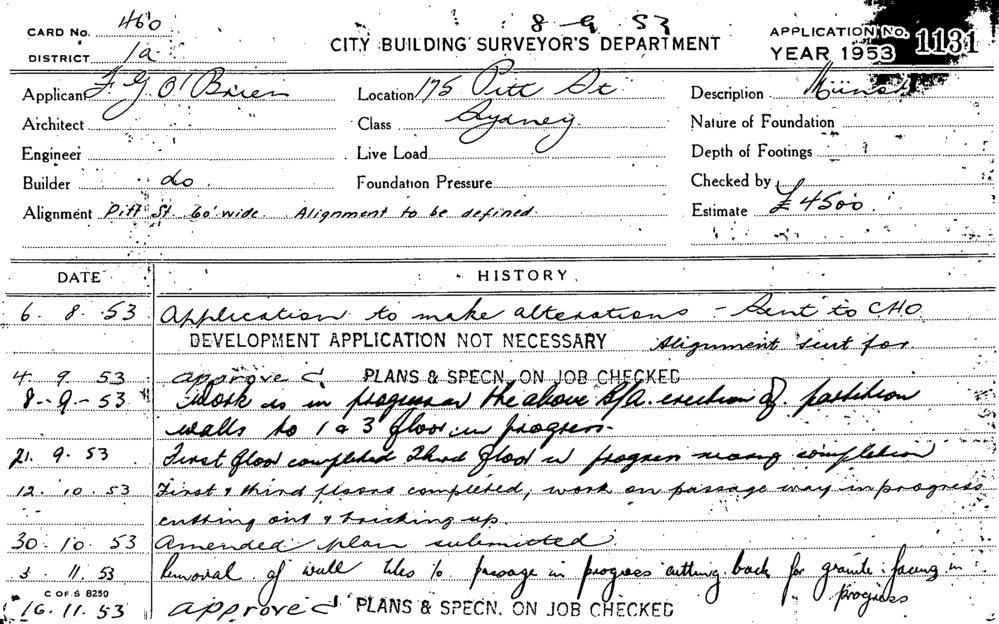 CARD No. 460
8-9-53
DISTRICT 1a
CITY BUILDING SURVEYOR'S DEPARTMENT
APPLICATION NO. 1131
YEAR 1953
Applicant F. G. O'Brien
Location 175 Pitt St
Description
Architect
Class Sydney
Nature of Foundation
Engineer
Live Load
Depth of Footings
Builder do
Foundation Pressure
Checked by
Alignment Pitt St. 60' wide. Alignment to be defined.
Estimate £4500
DATE HISTORY
6. 8. 53 Application to make alterations - Sent to CHO
DEVELOPMENT APPLICATION NOT NECESSARY Alignment sent for
4. 9. 53 approved PLANS & SPECN. ON JOB CHECKED
8-9-53 Work is in progress on the above B/A. erection of partition
walls to 1 & 3 floor in progress.
21. 9. 53 First floor completed Third floor in progress nearing completion
12. 10. 53 First & third floors completed, work on passage way in progress
cutting out & bricking up.
30. 10. 53 Amended plan submitted.
11. 53 Removal of wall tiles to passage in progress cutting back for granite facing in
progress
C OF S 8250
16. 11. 53 approved PLANS & SPECN. ON JOB CHECKED